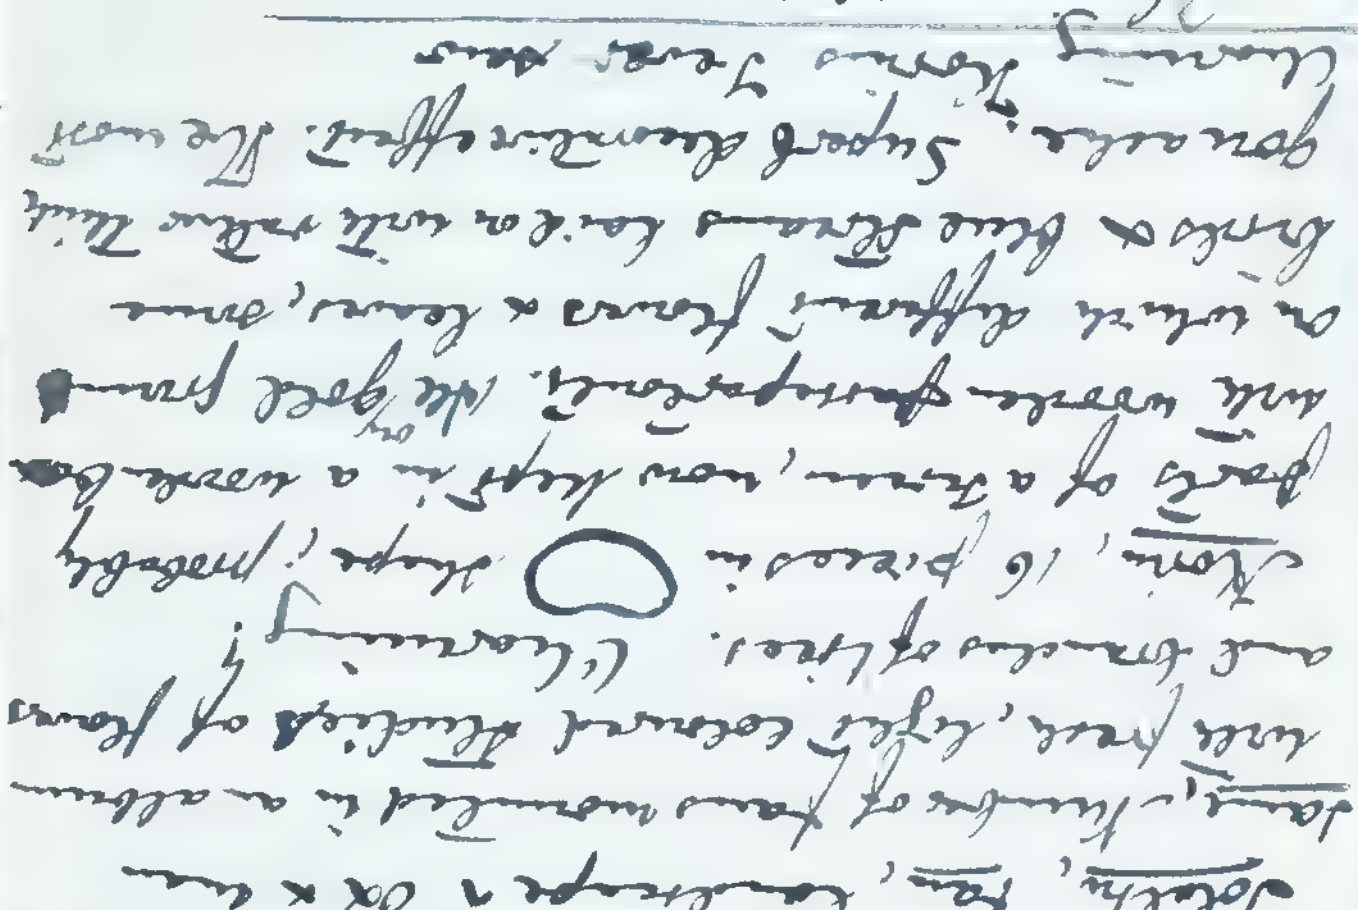 Fan, landscape ox & man
same, Number of fans mounted in an album
with fresh, light coloured studies of flowers
and branches of trees. Charming!
Korin, 16 pieces in shape; probably
parts of a screen, now kept in a wooden box
with wooden passepartouts. All gold ground
on which different flowers & leaves, some
birds & blue streams laid on with rather thick
gouache. Superb decorative effect. The most
charming Korins I ever saw